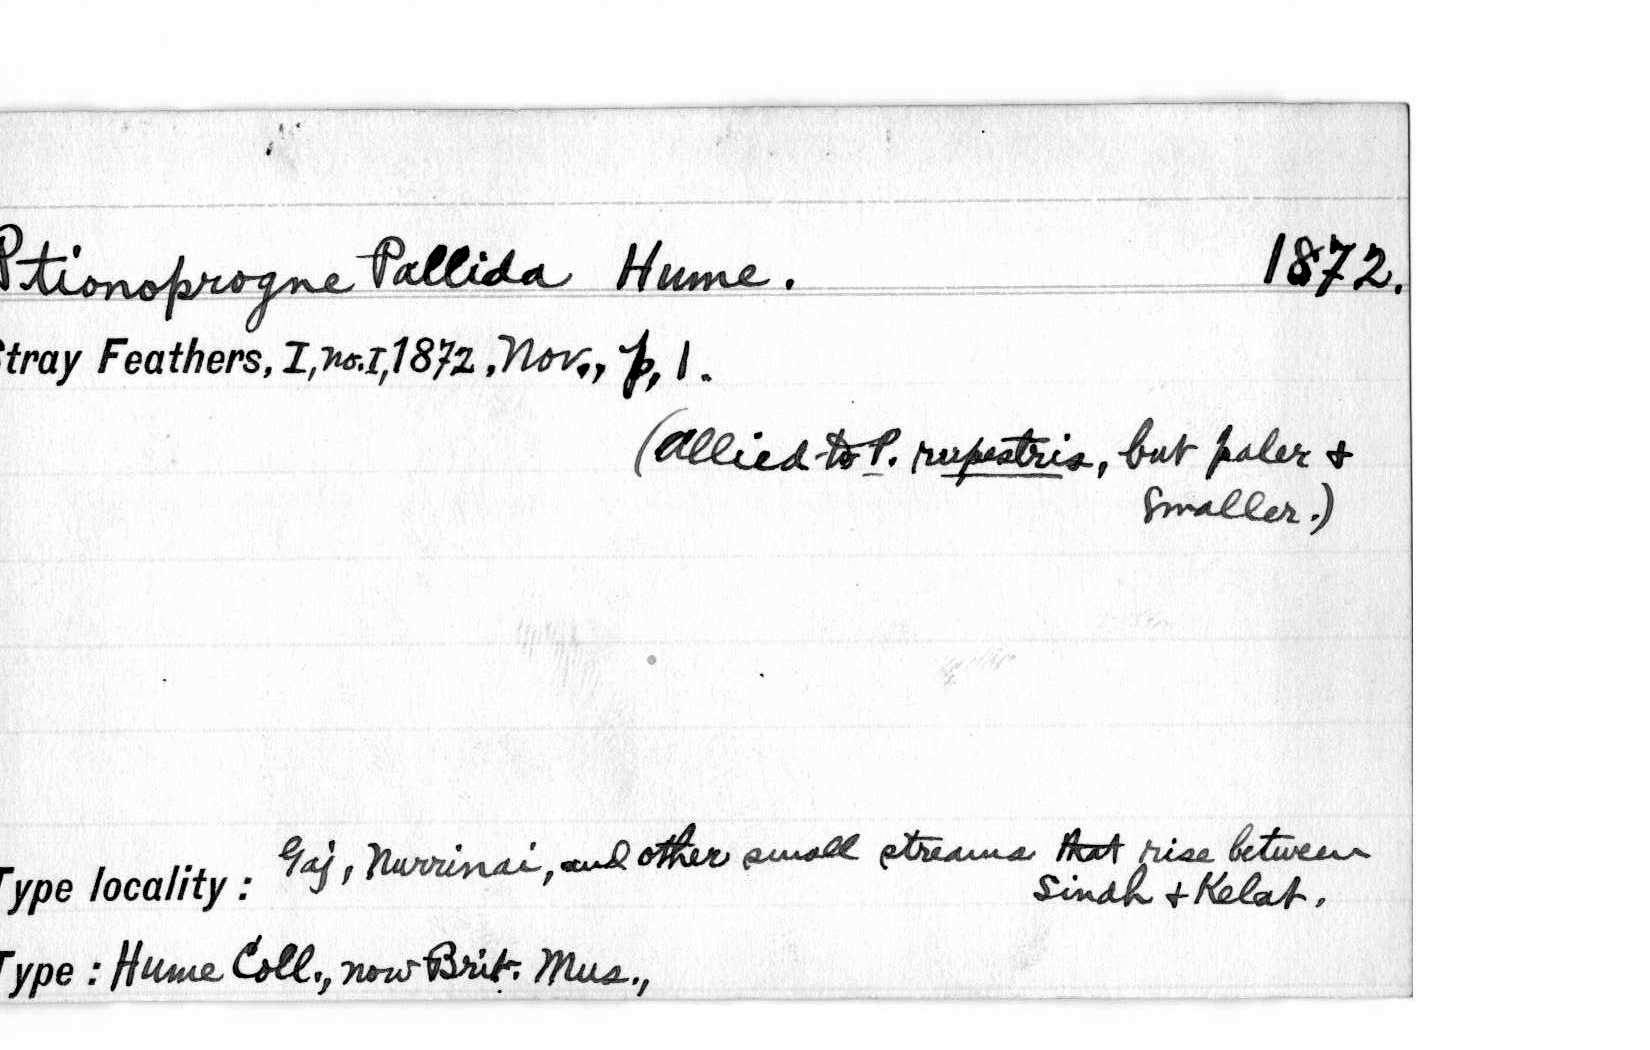 Ptionoprogne Pallida Hume. 1872.
Stray Feathers, I, no. I, 1872, Nov., p, 1.
(Allied to P. rupestris, but paler &
smaller.)
Gaj, Nurrinai, and other small streams that rise between
Type locality: Sindh & Kelat.
Type: Hume Coll., now Brit. Mus.,